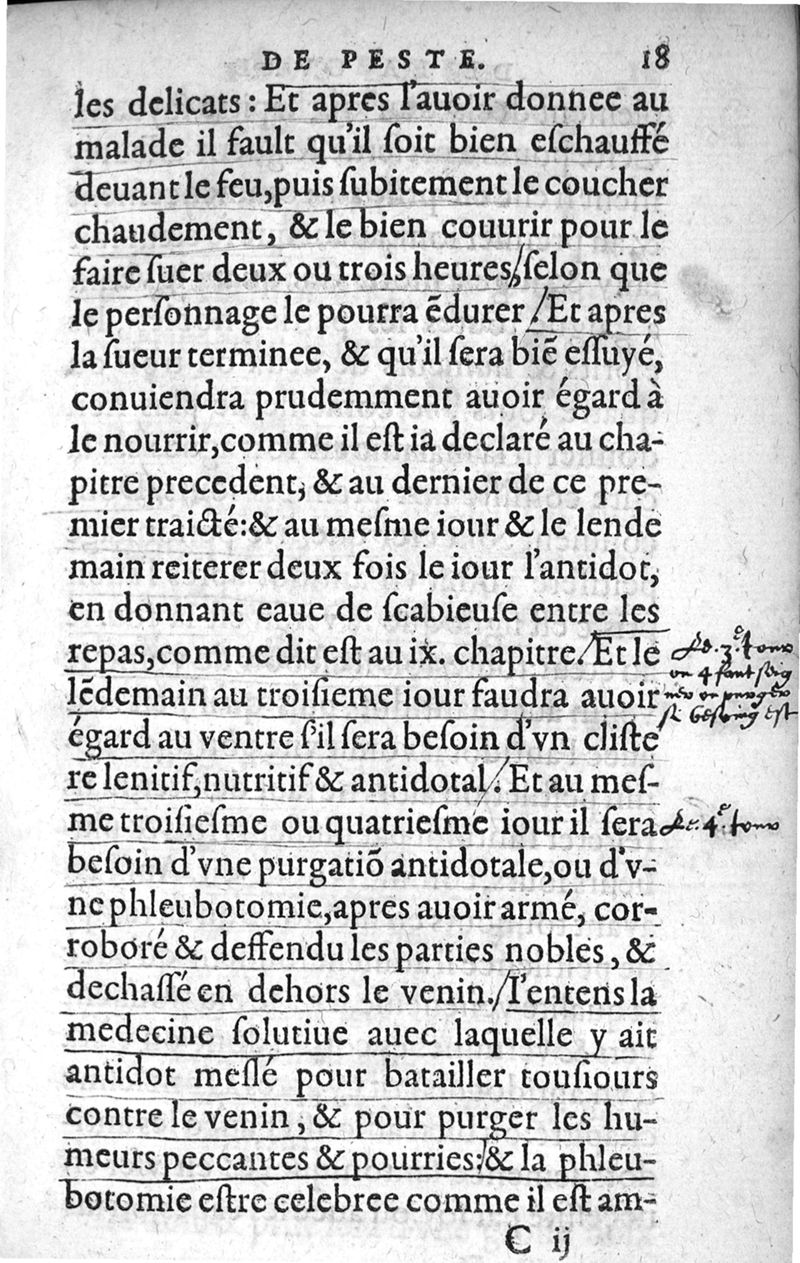 DE PESTE. 18
les delicats : Et apres l'auoir donnee au
malade il fault qu'il ſoit bien eſchauffé
deuant le feu, puis ſubitement le coucher
chaudement, & le bien couurir pour le
faire ſuer deux ou trois heures, ſelon que
le perſonnage le pourra ēdurer / Et apres
la ſueur terminee, & qu'il ſera biē eſſuyé,
conuiendra prudemment auoir égard à
le nourrir, comme il eſt ia declaré au cha-
pitre precedent, & au dernier de ce pre-
mier traicté: & au meſme iour & le lende
main reiterer deux fois le iour l'antidot,
en donnant eaue de ſcabieuſe entre les
repas, comme dit eſt au ix. chapitre. / Et le
lēdemain au troiſieme iour faudra auoir
égard au ventre ſ'il ſera beſoin d'vn cliſte
re lenitif, nutritif & antidotal / . Et au meſ-
me troiſieſme ou quatrieſme iour il ſera
beſoin d'vne purgatiō antidotale, ou d'v-
ne phleubotomie, apres auoir armé, cor-
roboré & deffendu les parties nobles, &
dechaſſé en dehors le venin. / I'entens la
medecine ſolutiue auec laquelle y ait
antidot meſlé pour batailler touſiours
contre le venin, & pour purger les hu-
meurs peccantes & pourries: / & la phleu-
botomie eſtre celebree comme il eſt am-
C ij
Le. 3.e Iour
ou 4 faut ſeig
ner ou purger
ſi beſoing eſt
Le. 4.e Iour